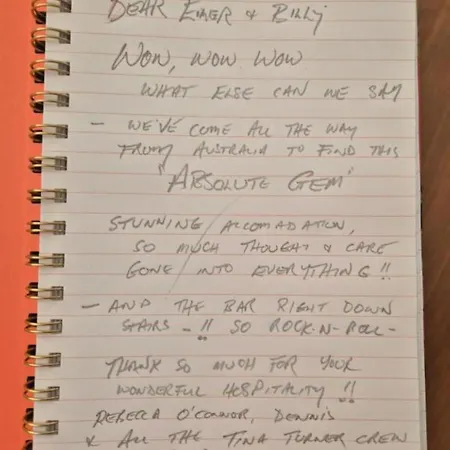 DEAR EIMER & BILLY
WOW, WOW WOW
WHAT ELSE CAN WE SAY
- WE'VE COME ALL THE WAY
FROM AUSTRALIA TO FIND THIS
"ABSOLUTE GEM"
STUNNING ACCOMADATION,
SO MUCH THOUGHT & CARE
GONE INTO EVERYTHING !!
- AND THE BAR RIGHT DOWN
STAIRS - !! SO ROCK-N-ROLL -
THANK SO MUCH FOR YOUR
WONDERFUL HOSPITALITY !!
REBECCA O'CONNOR, DENNIS
& ALL THE TINA TURNER CREW